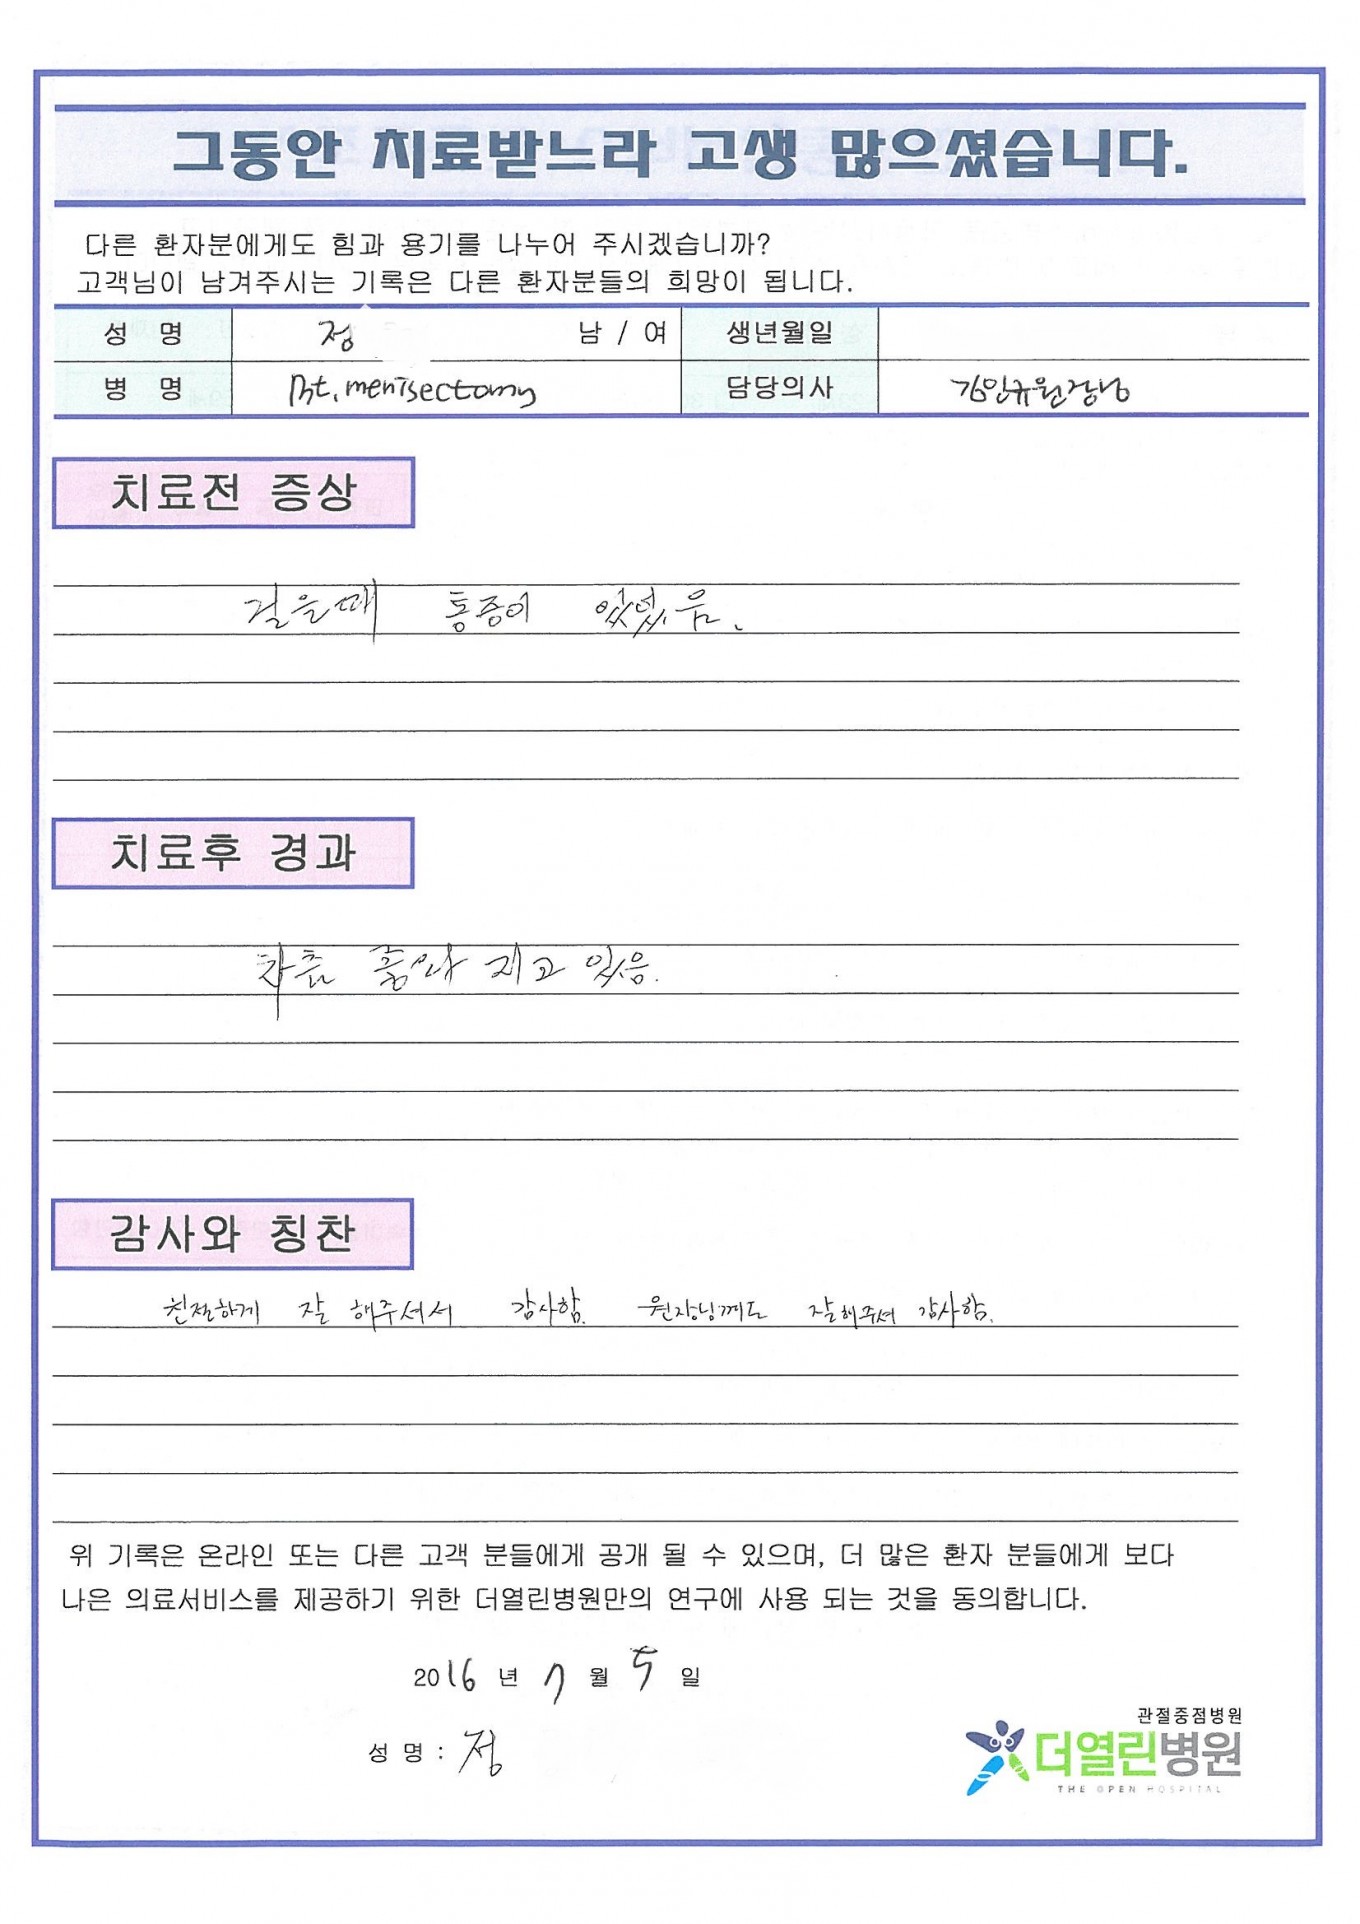 그동안 치료받느라 고생 많으셨습니다.
다른 환자분에게도 힘과 용기를 나누어 주시겠습니까?
고객님이 남겨주시는 기록은 다른 환자분들의 희망이 됩니다.
성 명 정 남 / 여 생년월일
병 명 Rt. menisectomy 담당의사 김인규원장님
치료전 증상
걸을때 통증이 있었음.
치료후 경과
차츰 좋아 지고 있음.
감사와 칭찬
친절하게 잘 해주셔서 감사함. 원장님께도 잘해주셔 감사함.
위 기록은 온라인 또는 다른 고객 분들에게 공개 될 수 있으며, 더 많은 환자 분들에게 보다
나은 의료서비스를 제공하기 위한 더열린병원만의 연구에 사용 되는 것을 동의합니다.
2016 년 7 월 5 일
성 명 : 정
관절중점병원
더열린병원
THE OPEN HOSPITAL